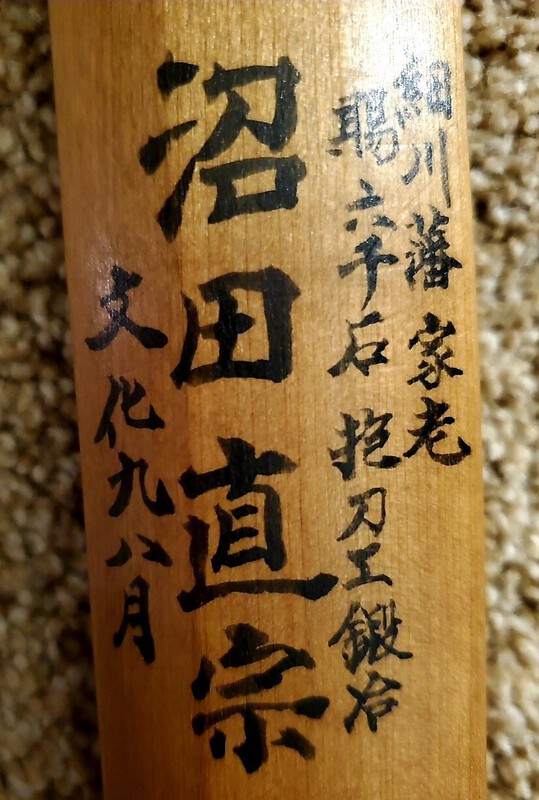 細川藩家老
賜六千石抱刀工鍛冶
沼田直宗
文化九八月